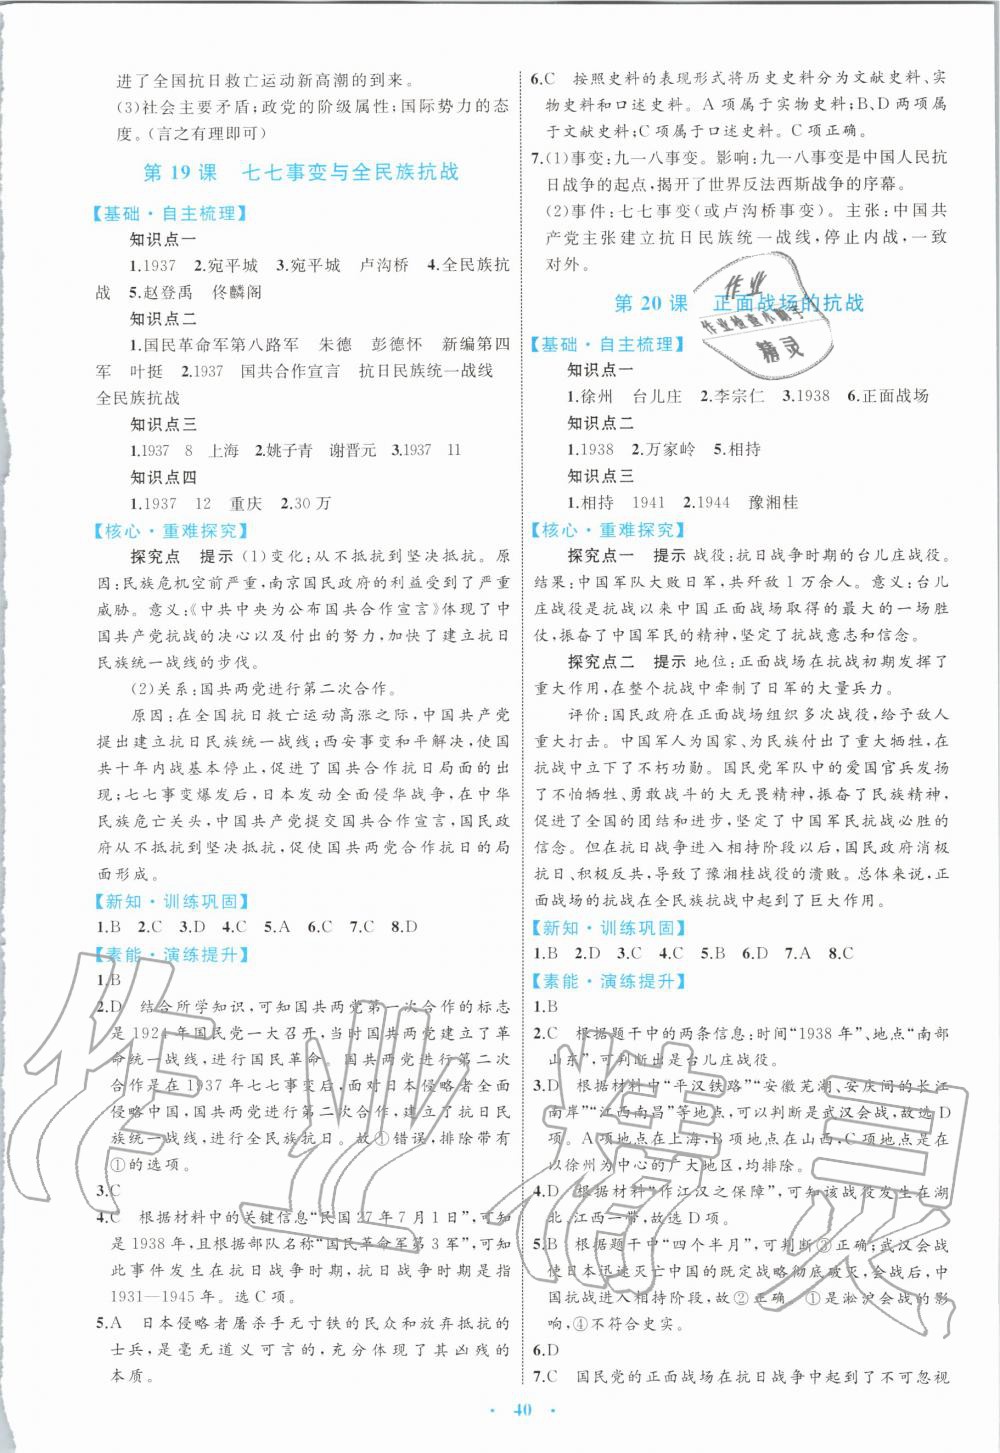 进了全国抗日救亡运动新高潮的到来。
(3)社会主要矛盾;政党的阶级属性;国际势力的态
度。(言之有理即可)
第 19 课　七七事变与全民族抗战
【基础·自主梳理】
知识点一
1.1937　2.宛平城　3.宛平城　卢沟桥　4.全民族抗
战　5.赵登禹　佟麟阁
知识点二
1.国民革命军第八路军　朱德　彭德怀　新编第四
军　叶挺　2.1937　国共合作宣言　抗日民族统一战线
全民族抗战
知识点三
1.1937　8　上海　2.姚子青　谢晋元　3.1937　11
知识点四
1.1937　12　重庆　2.30 万
【核心·重难探究】
探究点　提示　(1)变化:从不抵抗到坚决抵抗。原
因:民族危机空前严重,南京国民政府的利益受到了严重
威胁。意义:《中共中央为公布国共合作宣言》体现了中
国共产党抗战的决心以及付出的努力,加快了建立抗日
民族统一战线的步伐。
(2)关系:国共两党进行第二次合作。
原因:在全国抗日救亡运动高涨之际,中国共产党
提出建立抗日民族统一战线;西安事变和平解决,使国
共十年内战基本停止,促进了国共合作抗日局面的出
现;七七事变爆发后,日本发动全面侵华战争,在中华
民族危亡关头,中国共产党提交国共合作宣言,国民政
府从不抵抗到坚决抵抗,促使国共两党合作抗日的局
面形成。
【新知·训练巩固】
1.B　2.C　3.D　4.C　5.A　6.C　7.C　8.D
【素能·演练提升】
1.B
2.D　结合所学知识,可知国共两党第一次合作的标志
是 1924 年国民党一大召开,当时国共两党建立了革
命统一战线,进行国民革命。国共两党进行第二次
合作是在 1937 年七七事变后,面对日本侵略者全面
侵略中国,国共两党进行第二次合作,建立了抗日民
族统一战线,进行全民族抗日。故①错误,排除带有
①的选项。
3.C
4.C　根据材料中的关键信息“民国 27 年 7 月 1 日”,可知
是 1938 年,且根据部队名称“国民革命军第 3 军”,可知
此事件发生在抗日战争时期,抗日战争时期是指
1931—1945 年。选 C 项。
5.A　日本侵略者屠杀手无寸铁的民众和放弃抵抗的
士兵,是毫无道义可言的,充分体现了其凶残的
本质。
6.C　按照史料的表现形式将历史史料分为文献史料、实
物史料和口述史料。A 项属于实物史料;B、D 两项属
于文献史料;C 项属于口述史料。C 项正确。
7.(1)事变:九一八事变。影响:九一八事变是中国人民抗
日战争的起点,揭开了世界反法西斯战争的序幕。
(2)事件:七七事变(或卢沟桥事变)。主张:中国共
产党主张建立抗日民族统一战线,停止内战,一致
对外。
第 20 课　正面战场的抗战
【基础·自主梳理】
知识点一
1.徐州　台儿庄　2.李宗仁　3.1938　6.正面战场
知识点二
1.1938　2.万家岭　5.相持
知识点三
1.相持　1941　2.1944　豫湘桂
【核心·重难探究】
探究点一　提示　战役:抗日战争时期的台儿庄战役。
结果:中国军队大败日军,共歼敌 1 万余人。意义:台儿
庄战役是抗战以来中国正面战场取得的最大的一场胜
仗,振奋了中国军民的精神,坚定了抗战意志和信念。
探究点二　提示　地位:正面战场在抗战初期发挥了
重大作用,在整个抗战中牵制了日军的大量兵力。
评价:国民政府在正面战场组织多次战役,给予敌人
重大打击。中国军人为国家、为民族付出了重大牺牲,在
抗战中立下了不朽功勋。国民党军队中的爱国官兵发扬
了不怕牺牲、勇敢战斗的大无畏精神,振奋了民族精神,
促进了全国的团结和进步,坚定了中国军民抗战必胜的
信念。但在抗日战争进入相持阶段以后,国民政府消极
抗日、积极反共,导致了豫湘桂战役的溃败。总体来说,正
面战场的抗战在全民族抗战中起到了巨大作用。
【新知·训练巩固】
1.B　2.D　3.C　4.C　5.D　6.B　7.A　8.C
【素能·演练提升】
1.B
2.C　根据题干中的两条信息:时间“1938 年”、地点“南部
山东”,可判断出是台儿庄战役。
3.D　根据材料中“平汉铁路”“安徽芜湖、安庆间的长江
南岸”“江西南昌”等地点,可以判断是武汉会战,故选 D
项。A 项地点在上海,B 项地点在山西,C 项地点是在
以徐州为中心的广大地区,均排除。
4.D　根据材料“作江汉之保障”,可知该战役发生在湖
北、江西一带,故选 D 项。
5.B　根据题干中“四个半月”,可判断③正确;武汉会战
使日本迅速灭亡中国的既定战略彻底破灭,会战后,中
国抗战进入相持阶段,故②正确。①是淞沪会战的影
响,④不符合史实。
6.D
7.C　国民党的正面战场在抗日战争中起到了不可忽视
· 40 ·
作业
作业检查小助手
精灵
作业精灵